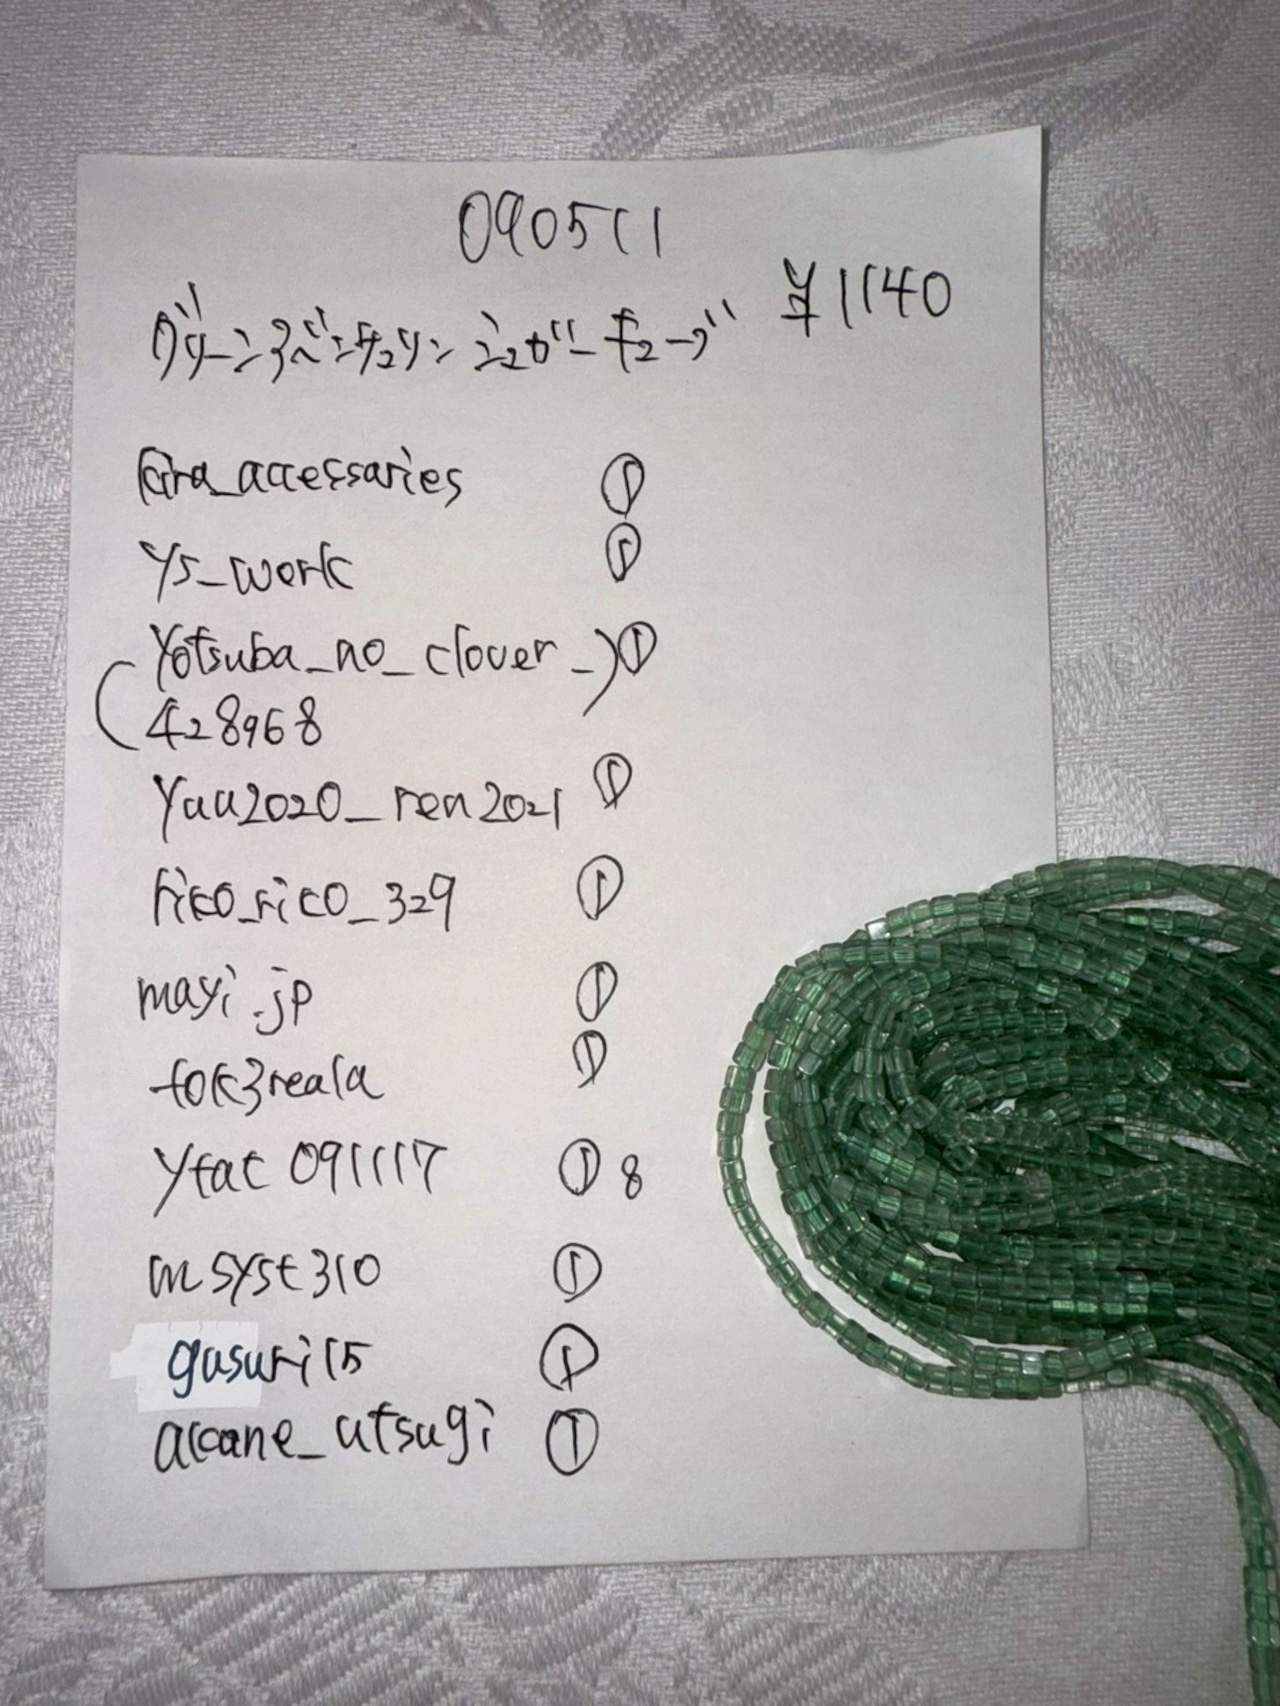 090511
グリーンアベンチュリン シュガーキューブ ¥1140
kira_accessaries ①
ys_work ①
(yotsuba_no_clover_) ①
428968
yuu2020_ren2021 ①
rico_rico_329 ①
mayi.jp ①
tok3reala ①
ytat091117 ① 8
msyst310 ①
gusuri15 ①
acane_utsugi ①